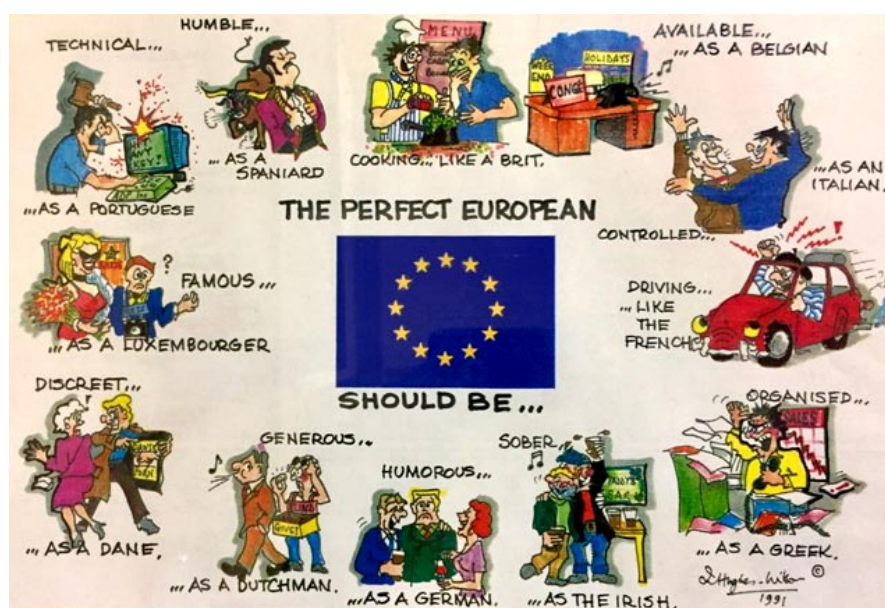 TECHNICAL...
...AS A PORTUGUESE
HIT ANY KEY!
HUMBLE...
...AS A
SPANIARD
MENU
COOKING... LIKE A BRIT.
WEEK
END
HOLIDAYS
CONGÉ
AVAILABLE...
...AS A BELGIAN
CONTROLLED...
...AS AN
ITALIAN.
THE PERFECT EUROPEAN
SHOULD BE...
FAMOUS...
...AS A LUXEMBOURGER
?
DRIVING...
...LIKE
THE
FRENCH
!
DISCREET...
...AS A DANE.
GENEROUS...
BLIND
GIVE!
...AS A DUTCHMAN.
HUMOROUS...
...AS A GERMAN.
SOBER...
PADDY'S
...AS THE IRISH.
ORGANISED...
SALES
...AS A GREEK.
©
1991